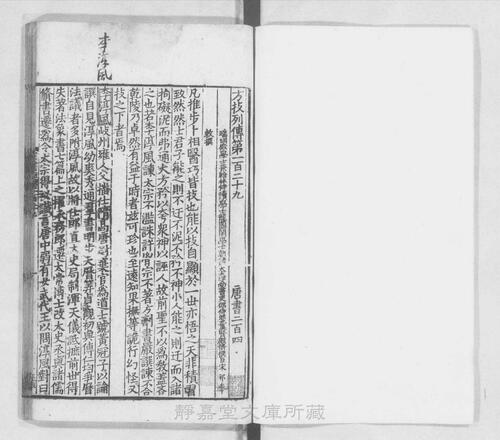 李淳風
方技列傳第一百二十九
唐書二百四
端明殿學士兼翰林侍讀學士龍圖閣學士
宋祁奉
敕撰
凡推步卜相醫巧皆技也能以技自顯於一世亦悟之天非積習
致然然士君子能之則不迂不泥不矜不神小人能之則迂而入諸
拘礙泥而弗通大方矜以夸衆神以誣人故前聖不以爲教蓋吝
之也若李淳風諫太宗不濫誅許胤宗不著方劑書嚴譔諫不合
乾陵乃卓然有益于時者兹可珍也至遠知果撫等詭行幻怪又
技之下者焉
李淳風岐州雍人父播仕隋高唐尉棄官爲道士號黃冠子以論
譔自見淳風幼爽秀通羣書明步天曆算貞觀初與傅仁均爭曆
法議者多附淳風故以將仕郎直太史局制渾天儀詆摭前世得
失著法象書七篇上之擢承務郎遷太常博士改太史丞與諸儒
脩書遷爲令太宗得祕讖言唐中弱有女武代王以問淳風對曰
靜嘉堂文庫所藏